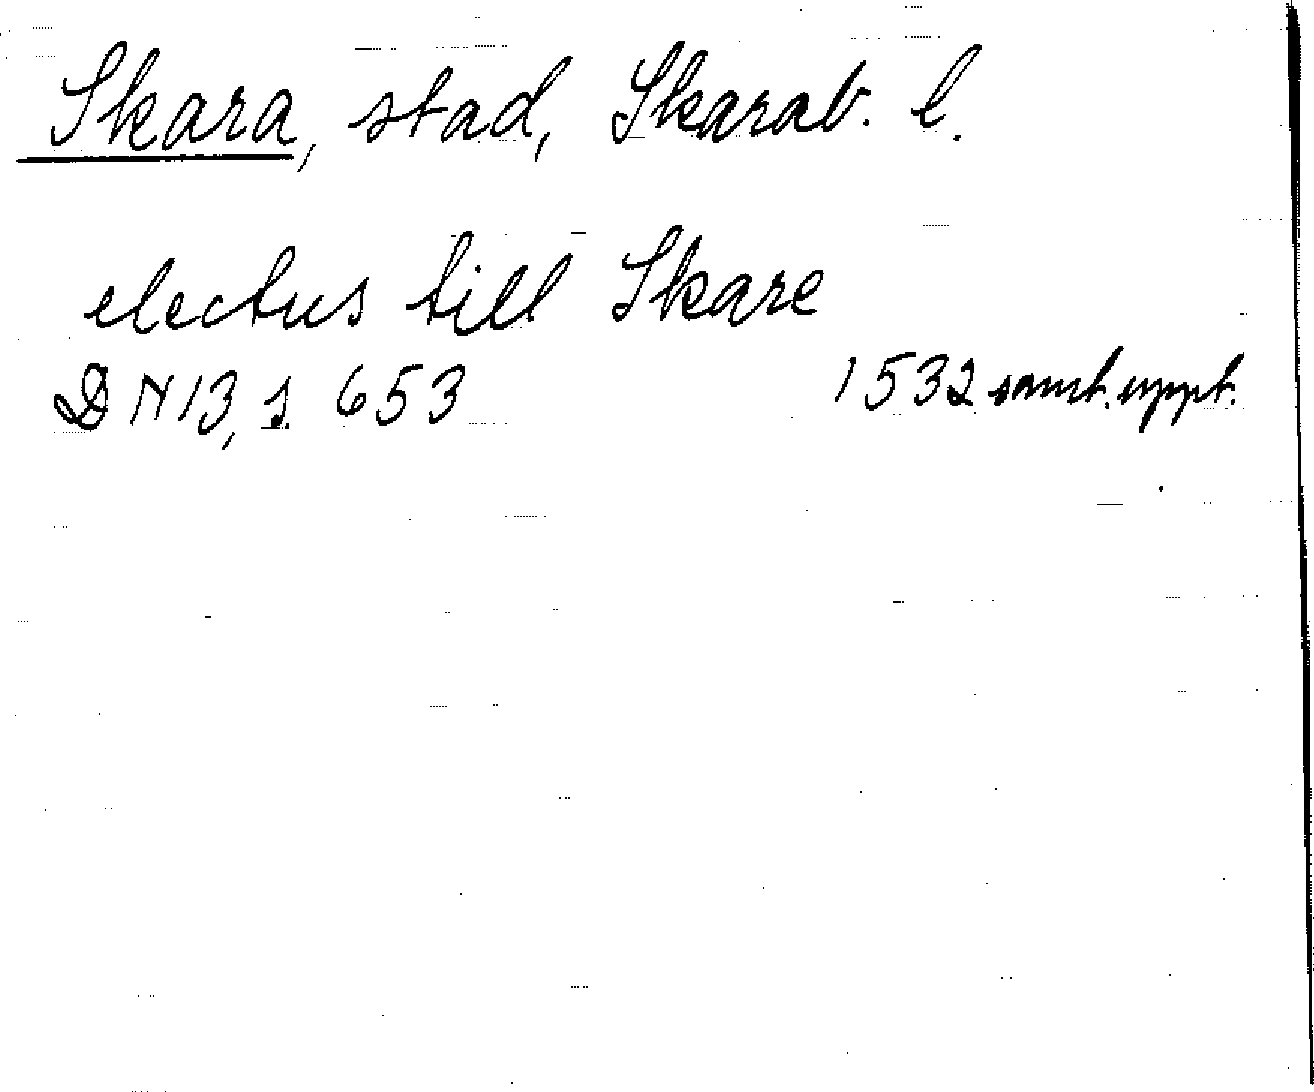 Skara, stad, Skarab. l.
electus till Skare
DN 13, s. 653 1532 samt. uppt.